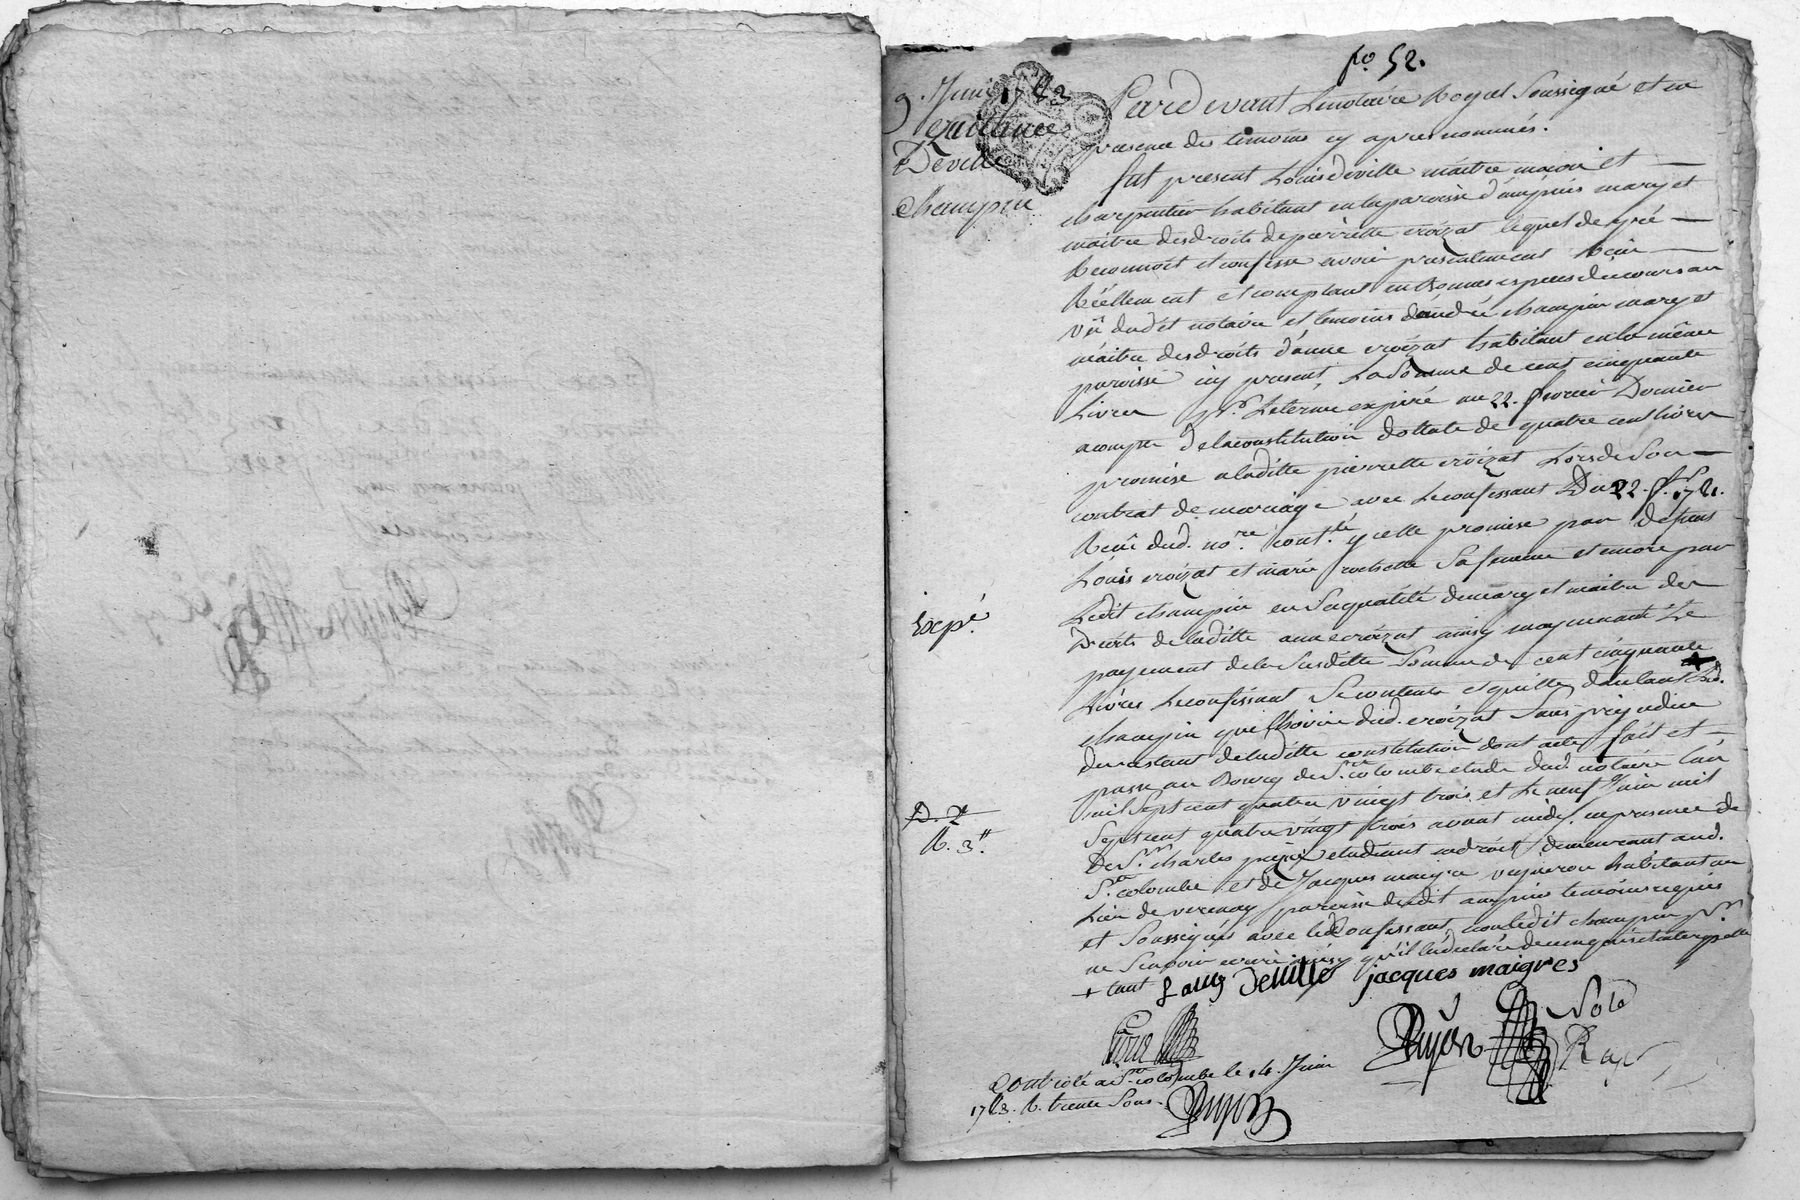 fo. 52.
9. Juin 1783
quittance
Deville
Champin
Pardevant Le notaire Royal Soussigné et en
presence des temoins cy apres nommés.
fut present Louis deville maitre maçon et
charpentier habitant en la paroisse d'ampuis mary et
maitre des droits de pierrette croizat lequel de gré
Reconnoit et confesse avoir presentement Reçu
Réellement et comptant en bonnes especes du cours au
vû dudit notaire et temoins d'andré champin mary et
maitre des droits d'anne croizat habitant en la même
paroisse icy present, La Somme de cent cinquante
Livres pr. Le terme expiré au 22. fevrier Dernier
acompte de la constitution dottale de quatre cent livres
promise a laditte pierrette croizat Lors de Son
contrat de mariage avec Le confessant Du 22. fr. 1781.
Reçu dud. nore. contlé. ycelle promise par defunts
Louis croizat et marie rochette Sa femme et encore par
Ledit champin en Sa qualité de mary et maitre des
Droits de laditte anne croizat ainsy moyennant Le
payement de la Susditte Somme de cent cinquante
Livres Le confessant Se contente et quitte d'autant Led.
champin que l'hoirie dud. croizat Sans prejudice
du restant de laditte constitution dont acte fait et
passé au Bourg de Ste. colombe etude dud. notaire l'an
mil Sept cent quatre vingt trois et Le neuf Juin mil
Sept cent quatre vingt trois avant midy en presence de
De Sr. charles etudiant en droit demeurant aud.
Ste. colombe et de Jacques maigre vigneron habitant au
Lieu de verenay paroisse dudit ampuis temoins requis
et Soussignés avec le Confessant, non ledit champin pr.
ne Scavoir ecrire ainsy qu'il l'a declaré de ce enquis et interpellé
+ tant Louis Deville jacques maigres
Expé.
D. 2
R. 3tt.
Dujon Note
Roy
Controlé a Ste. colombe le 14. Juin
1783. R. trente Sous.
Dujon